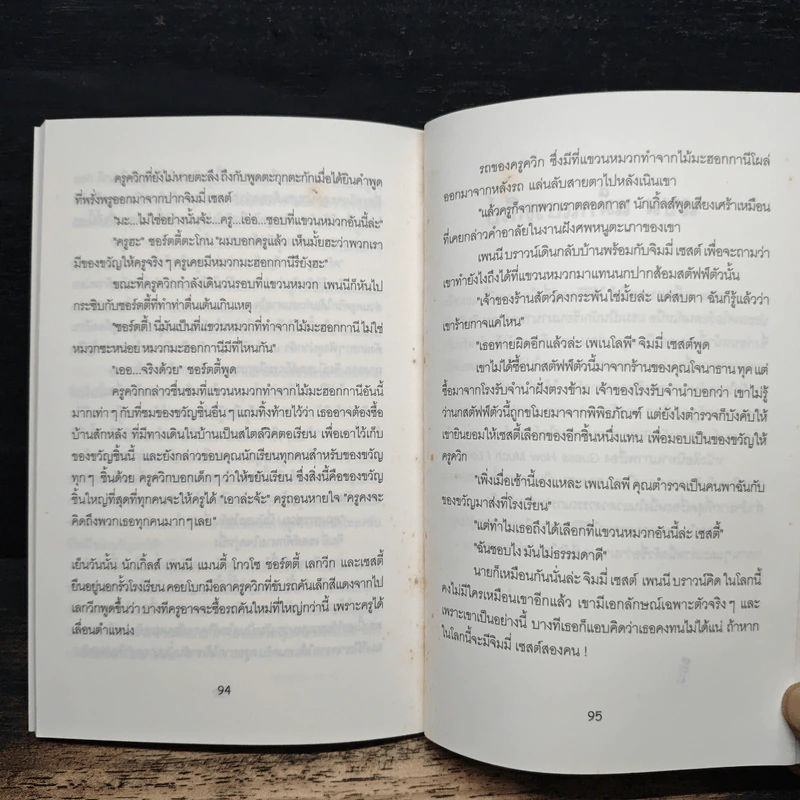 ครูควิกที่ยังไม่หายตะลึง ถึงกับพูดตะกุกตะกักเมื่อได้ยินคำพูด
ที่พรั่งพรูออกมาจากปากจิมมี่ เซสต์
"มะ...ไม่ใช่อย่างนั้นจ้ะ...ครู...เอ่อ...ชอบที่แขวนหมวกอันนี้ล่ะ"
"ครูฮะ" ชอร์ตตี้ตะโกน "ผมบอกครูแล้ว เห็นมั้ยฮะว่าพวกเรา
มีของขวัญให้ครูจริง ๆ ครูเคยมีหมวกมะฮอกกานีรึยังฮะ"
ขณะที่ครูควิกกำลังเดินวนรอบที่แขวนหมวก เพนนีก็หันไป
กระซิบกับชอร์ตตี้ที่ทำท่าตื่นเต้นเกินเหตุ
"ชอร์ตตี้! นี่มันเป็นที่แขวนหมวกที่ทำจากไม้มะฮอกกานี ไม่ใช่
หมวกซะหน่อย หมวกมะฮอกกานีมีที่ไหนกัน"
"เออ...จริงด้วย" ชอร์ตตี้พูด
ครูควิกกล่าวชื่นชมที่แขวนหมวกทำจากไม้มะฮอกกานีอันนี้
มากเท่า ๆ กับที่ชมของขวัญชิ้นอื่น ๆ แถมทิ้งท้ายไว้ว่า เธออาจต้องซื้อ
บ้านสักหลัง ที่มีทางเดินในบ้านเป็นสไตล์วิคตอเรียน เพื่อเอาไว้เก็บ
ของขวัญชิ้นนี้ และยังกล่าวขอบคุณนักเรียนทุกคนสำหรับของขวัญ
ทุก ๆ ชิ้นด้วย ครูควิกบอกเด็ก ๆ ว่าให้ขยันเรียน ซึ่งสิ่งนี้คือของขวัญ
ชิ้นใหญ่ที่สุดที่ทุกคนจะให้ครูได้ "เอาล่ะจ้ะ" ครูถอนหายใจ "ครูคงจะ
คิดถึงพวกเธอทุกคนมาก ๆ เลย"
เย็นวันนั้น นักเกิ้ลส์ เพนนี แมนดี้ โกวโซ ชอร์ตตี้ เลกวีก และเซสตี้
ยืนอยู่นอกรั้วโรงเรียน คอยโบกมือลาครูควิกที่ขับรถคันเล็กสีแดงจากไป
เลกวีกพูดขึ้นว่า บางทีครูอาจจะซื้อรถคันใหม่ที่ใหญ่กว่านี้ เพราะครูได้
เลื่อนตำแหน่ง
94
รถของครูควิก ซึ่งมีที่แขวนหมวกทำจากไม้มะฮอกกานีโผล่
ออกมาจากหลังรถ แล่นลับสายตาไปหลังเนินเขา
"แล้วครูก็จากพวกเราตลอดกาล" นักเกิ้ลส์พูดเสียงเศร้าเหมือน
ที่เคยกล่าวคำอาลัยในงานฝังศพหนูตะเภาของเขา
เพนนี บราวน์เดินกลับบ้านพร้อมกับจิมมี่ เซสต์ เพื่อจะถามว่า
เขาทำยังไงถึงได้ที่แขวนหมวกมาแทนนกปากส้อมสตัฟฟ์ตัวนั้น
"เจ้าของร้านสัตว์คงกระพันใช่มั้ยล่ะ แค่สบตา ฉันก็รู้แล้วว่า
เขาร้ายกาจแค่ไหน"
"เธอทายผิดอีกแล้วล่ะ เพเนโลพี" จิมมี่ เซสต์พูด
เขาไม่ได้ซื้อนกสตัฟฟ์ตัวนี้มาจากร้านของคุณโจนาธาน ทุค แต่
ซื้อมาจากโรงรับจำนำฝั่งตรงข้าม เจ้าของโรงรับจำนำบอกว่า เขาไม่รู้
ว่านกสตัฟฟ์ตัวนี้ถูกขโมยมาจากพิพิธภัณฑ์ แต่ยังไงตำรวจก็บังคับให้
เขายินยอมให้เซสตี้เลือกของอีกชิ้นหนึ่งแทน เพื่อมอบเป็นของขวัญให้
ครูควิก
"เพิ่งเมื่อเช้านี้เองแหละ เพเนโลพี คุณตำรวจเป็นคนพาฉันกับ
ของขวัญมาส่งที่โรงเรียน"
"แต่ทำไมเธอถึงได้เลือกที่แขวนหมวกอันนี้ล่ะ เซสตี้"
"ฉันชอบไง มันไม่ธรรมดาดี"
นายก็เหมือนกันนั่นล่ะ จิมมี่ เซสต์ เพนนี บราวน์คิด ในโลกนี้
คงไม่มีใครเหมือนเขาอีกแล้ว เขามีเอกลักษณ์เฉพาะตัวจริง ๆ และ
เพราะเขาเป็นอย่างนี้ บางทีเธอก็แอบคิดว่าเธอคงทนไม่ได้แน่ ถ้าหาก
ในโลกนี้จะมีจิมมี่ เซสต์สองคน !
95